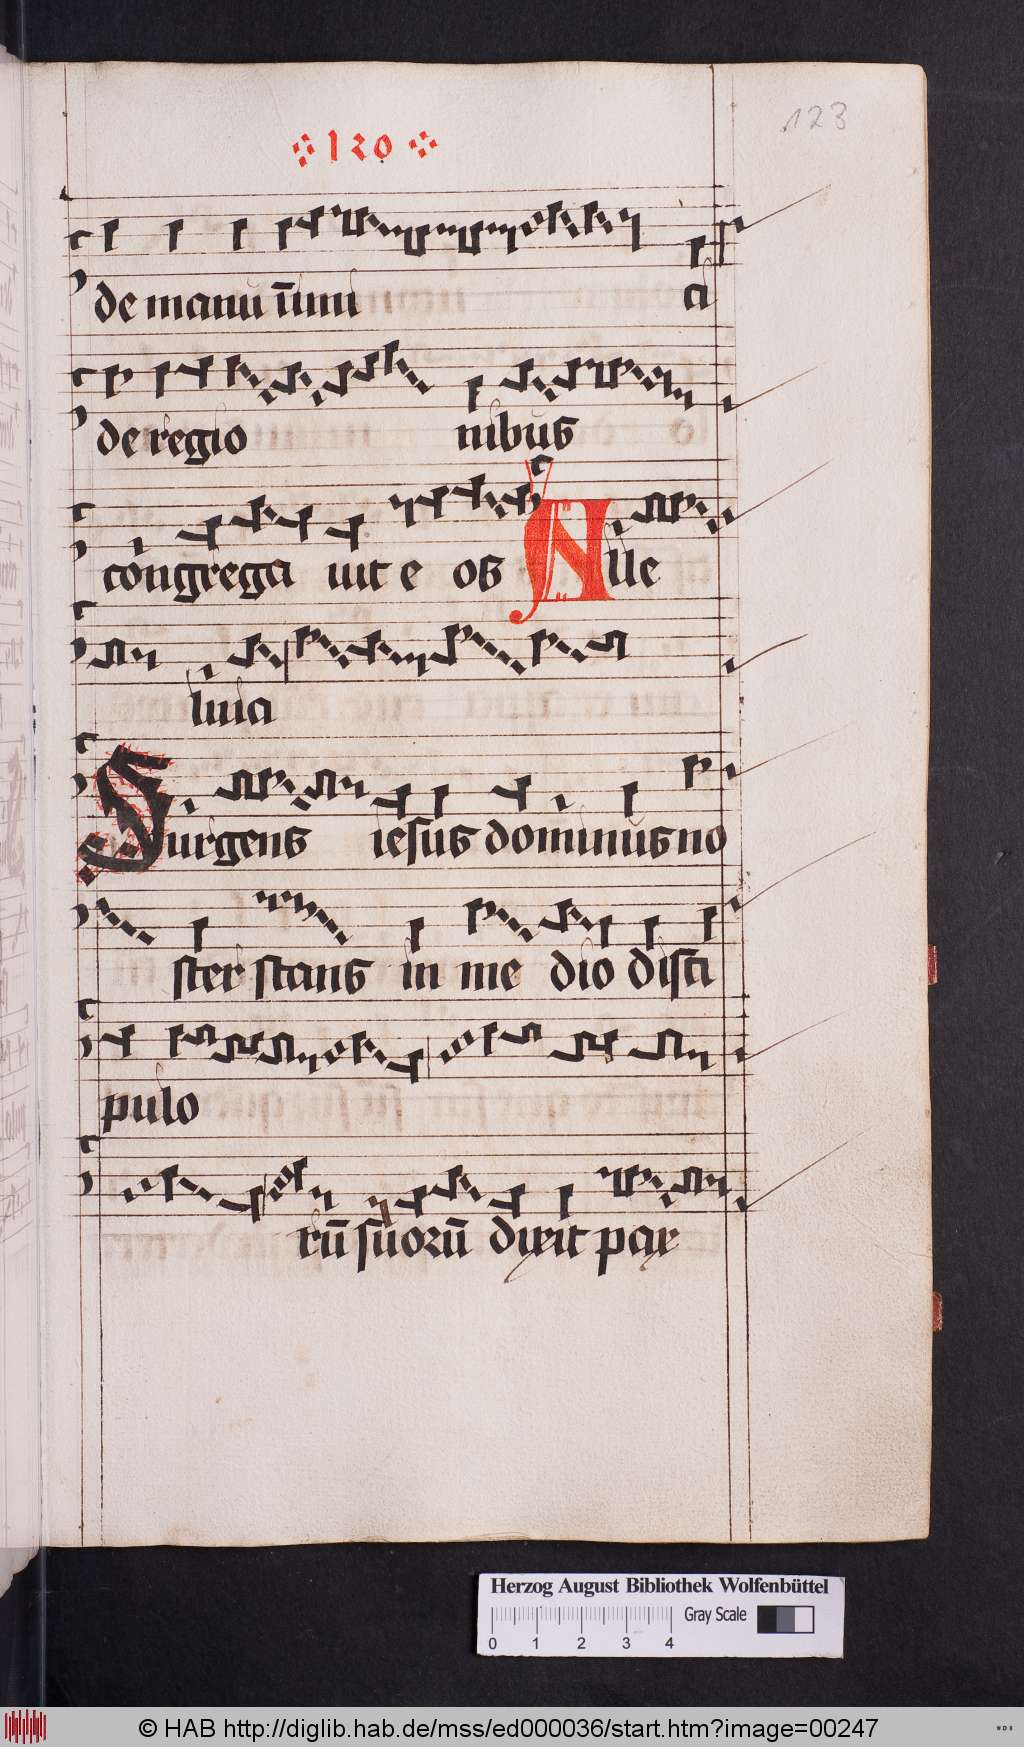 123
120
de manu inimi ci
de regio nibus
congrega uit e os Alle
luia
Surgens iesus dominus no
ster stans in me dio disci
pulo
rū suorū dixit pax
Herzog August Bibliothek Wolfenbüttel
Gray Scale
0 1 2 3 4
© HAB http://diglib.hab.de/mss/ed000036/start.htm?image=00247